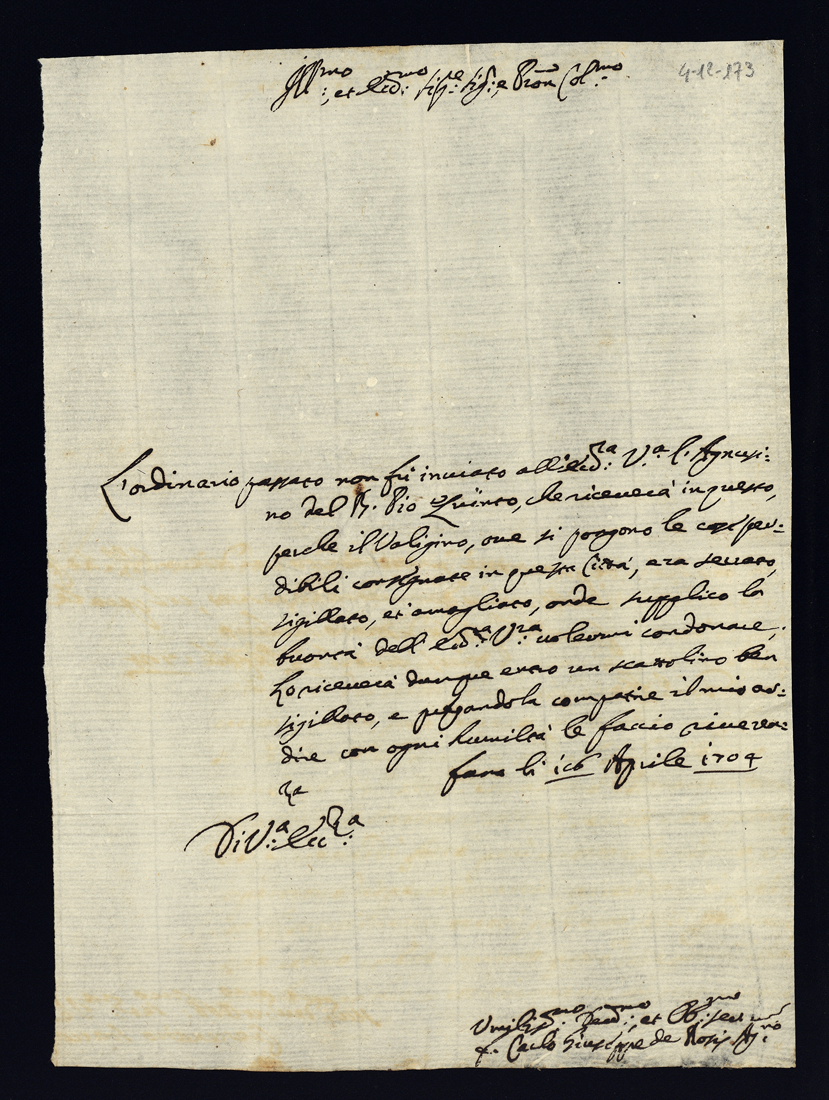 Ill:mo, et Ecc:mo Sig:re Sig:, e Pron Col:mo
4-12-173
L'ordinario passato non fù inuiato all'Ecc:za V.a l'Agnusi:
no del B. Pio Quinto, che riceuerà in questo,
perche il Valigino, oue si pongono le cose spe:
dibili consegnate in questa Città, era serrato,
sigillato, et amagliato, onde supplico la
buontà dell'Ecc:za V:ra uolermi condonare;
Lo riceuerà dunque entro un scattolino ben
sigillato, e pregandola compatire il mio ar:
dire con ogni humiltà le faccio riueren:
za
fano li 16 Aprile 1704
Di V:a Ecc:za
Vmiliss:mo Deu:mo, et Ob:mo seru
f. Carlo Giuseppe de Rossis